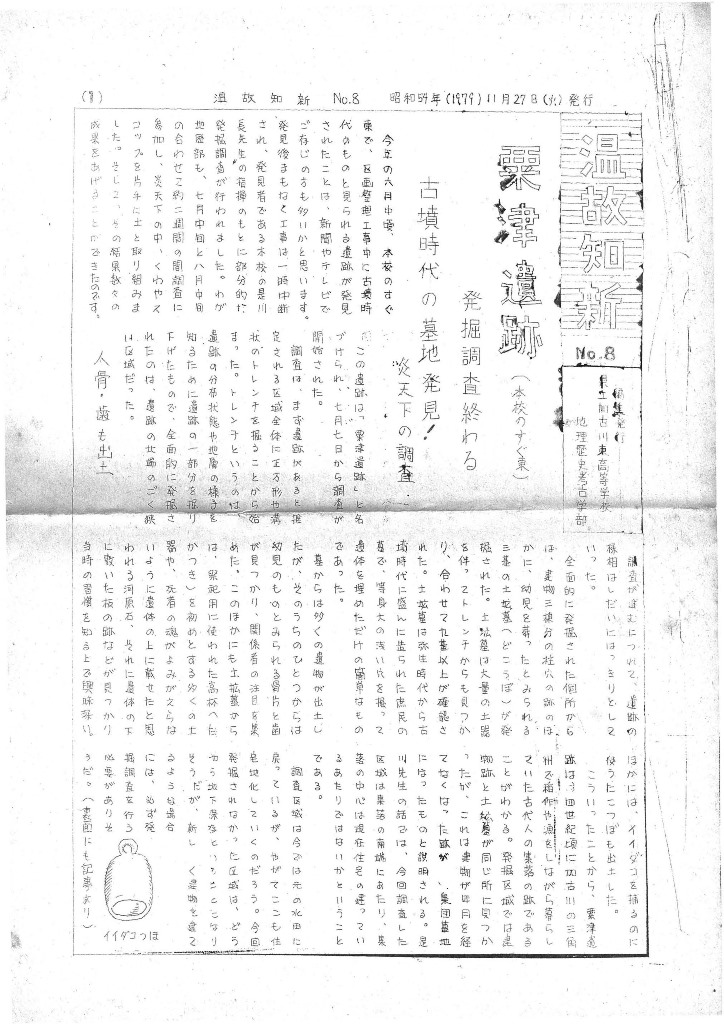 (1)　温故知新　No.8　昭和54年(1979) 11月27日(火)発行
温故知新
No.8
編集発行
県立加古川東高等学校
地理歴史考古学部
粟津遺跡
(本校のすぐ東)
発掘調査終わる
古墳時代の墓地発見!
炎天下の調査
今年の六月中頃、本校のすぐ
東で、区画整理工事中に古墳時
代のものと見られる遺跡が発見
されたことは、新聞やテレビで
ご存じの方も多いかと思います。
発見後まもなく工事は一時中断
され、発見者である本校の是川
長先生の指揮のもとに部分的な
発掘調査が行われました。わが
地歴部も、七月中旬と八月中旬
の合わせて約二週間の間調査に
参加し、炎天下の中、くわやス
コップを片手に土と取り組みま
した。そして、その結果数々の
成果をあげることができたのです。
この遺跡は「粟津遺跡」と名
づけられ、七月七日から調査が
開始された。
調査は、まず遺跡があると推
定される区域全体に正方形や溝
状のトレンチを掘ることから始
まった。トレンチというのは、
遺跡の分布状態や地層の様子を
知るために遺跡の一部分を掘り
下げたもので、全面的に発掘さ
れたのは、遺跡の北端のごく狭
い区域だった。
人骨・歯も出土
調査が進むにつれて、遺跡の
様相はしだいにはっきりとして
いった。
全面的に発掘された個所から
は、建物三棟分の柱穴の跡のほ
かに、幼児を葬ったとみられる
三基の土拡墓(どこうぼ)が発
掘された。土拡墓は大量の土器
を伴ってトレンチからも見つか
り、合わせて九基以上が確認さ
れた。土拡墓は弥生時代から古
墳時代に盛んに造られた庶民の
墓で、等身大の浅い穴を掘って
遺体を埋めただけの簡単なもの
であった。
墓からは多くの遺物が出土し
たが、そのうちのひとつからは
幼児のものとみられる骨片と歯
が見つかり、関係者の注目を集
めた。このほかにも土拡墓から
は、祭祀用に使われた高杯(た
かつき)を初めとする多くの土
器や、死者の魂がよみがえらな
いように遺体の上に載せたと思
われる河原石、それに遺体の下
に敷いた板の跡などが見つかり
当時の習慣を知る上で興味深い。
ほかには、イイダコを捕るのに
使うたこつぼも出土した。
こういったことから、粟津遺
跡は、三四世紀頃に加古川の三角
州で稲作や漁をしながら暮らし
ていた古代人の集落の跡である
ことがわかる。発掘区域では建
物跡と土拡墓が同じ所に見つか
ったが、これは建物が年月を経
てなくなった跡が、集団墓地
になったものと説明される。是
川先生の話では、今回調査した
区域は集落の南端にあたり、集
落の中心は現在住宅の建ってい
るあたりではないかということ
である。
調査区域は今では元の水田に
戻っているが、やがてここも住
宅地化していくのだろう。今回
発掘されなかった区域は、どう
やら地下保存ということになり
そうだが、新しく建物を建て
るような場合
には、必ず発
掘調査を行う
必要がありそ
うだ。(裏面にも記事あり)
イイダコつぼ